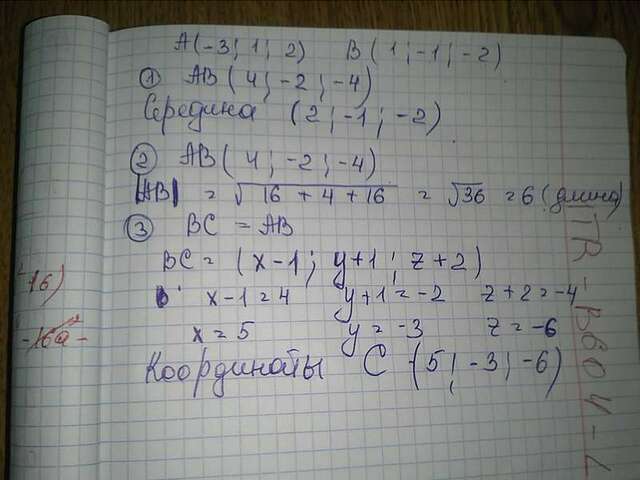 A(-3; 1; 2) B(1; -1; -2)
① AB(4; -2; -4)
Середина (2; -1; -2)
② AB(4; -2; -4)
|AB| = √16 + 4 + 16 = √36 = 6 (длина)
③ BC = AB
BC = (x-1; y+1; z+2)
x-1=4 y+1=-2 z+2=-4
x=5 y=-3 z=-6
Координаты C (5; -3; -6)
16)